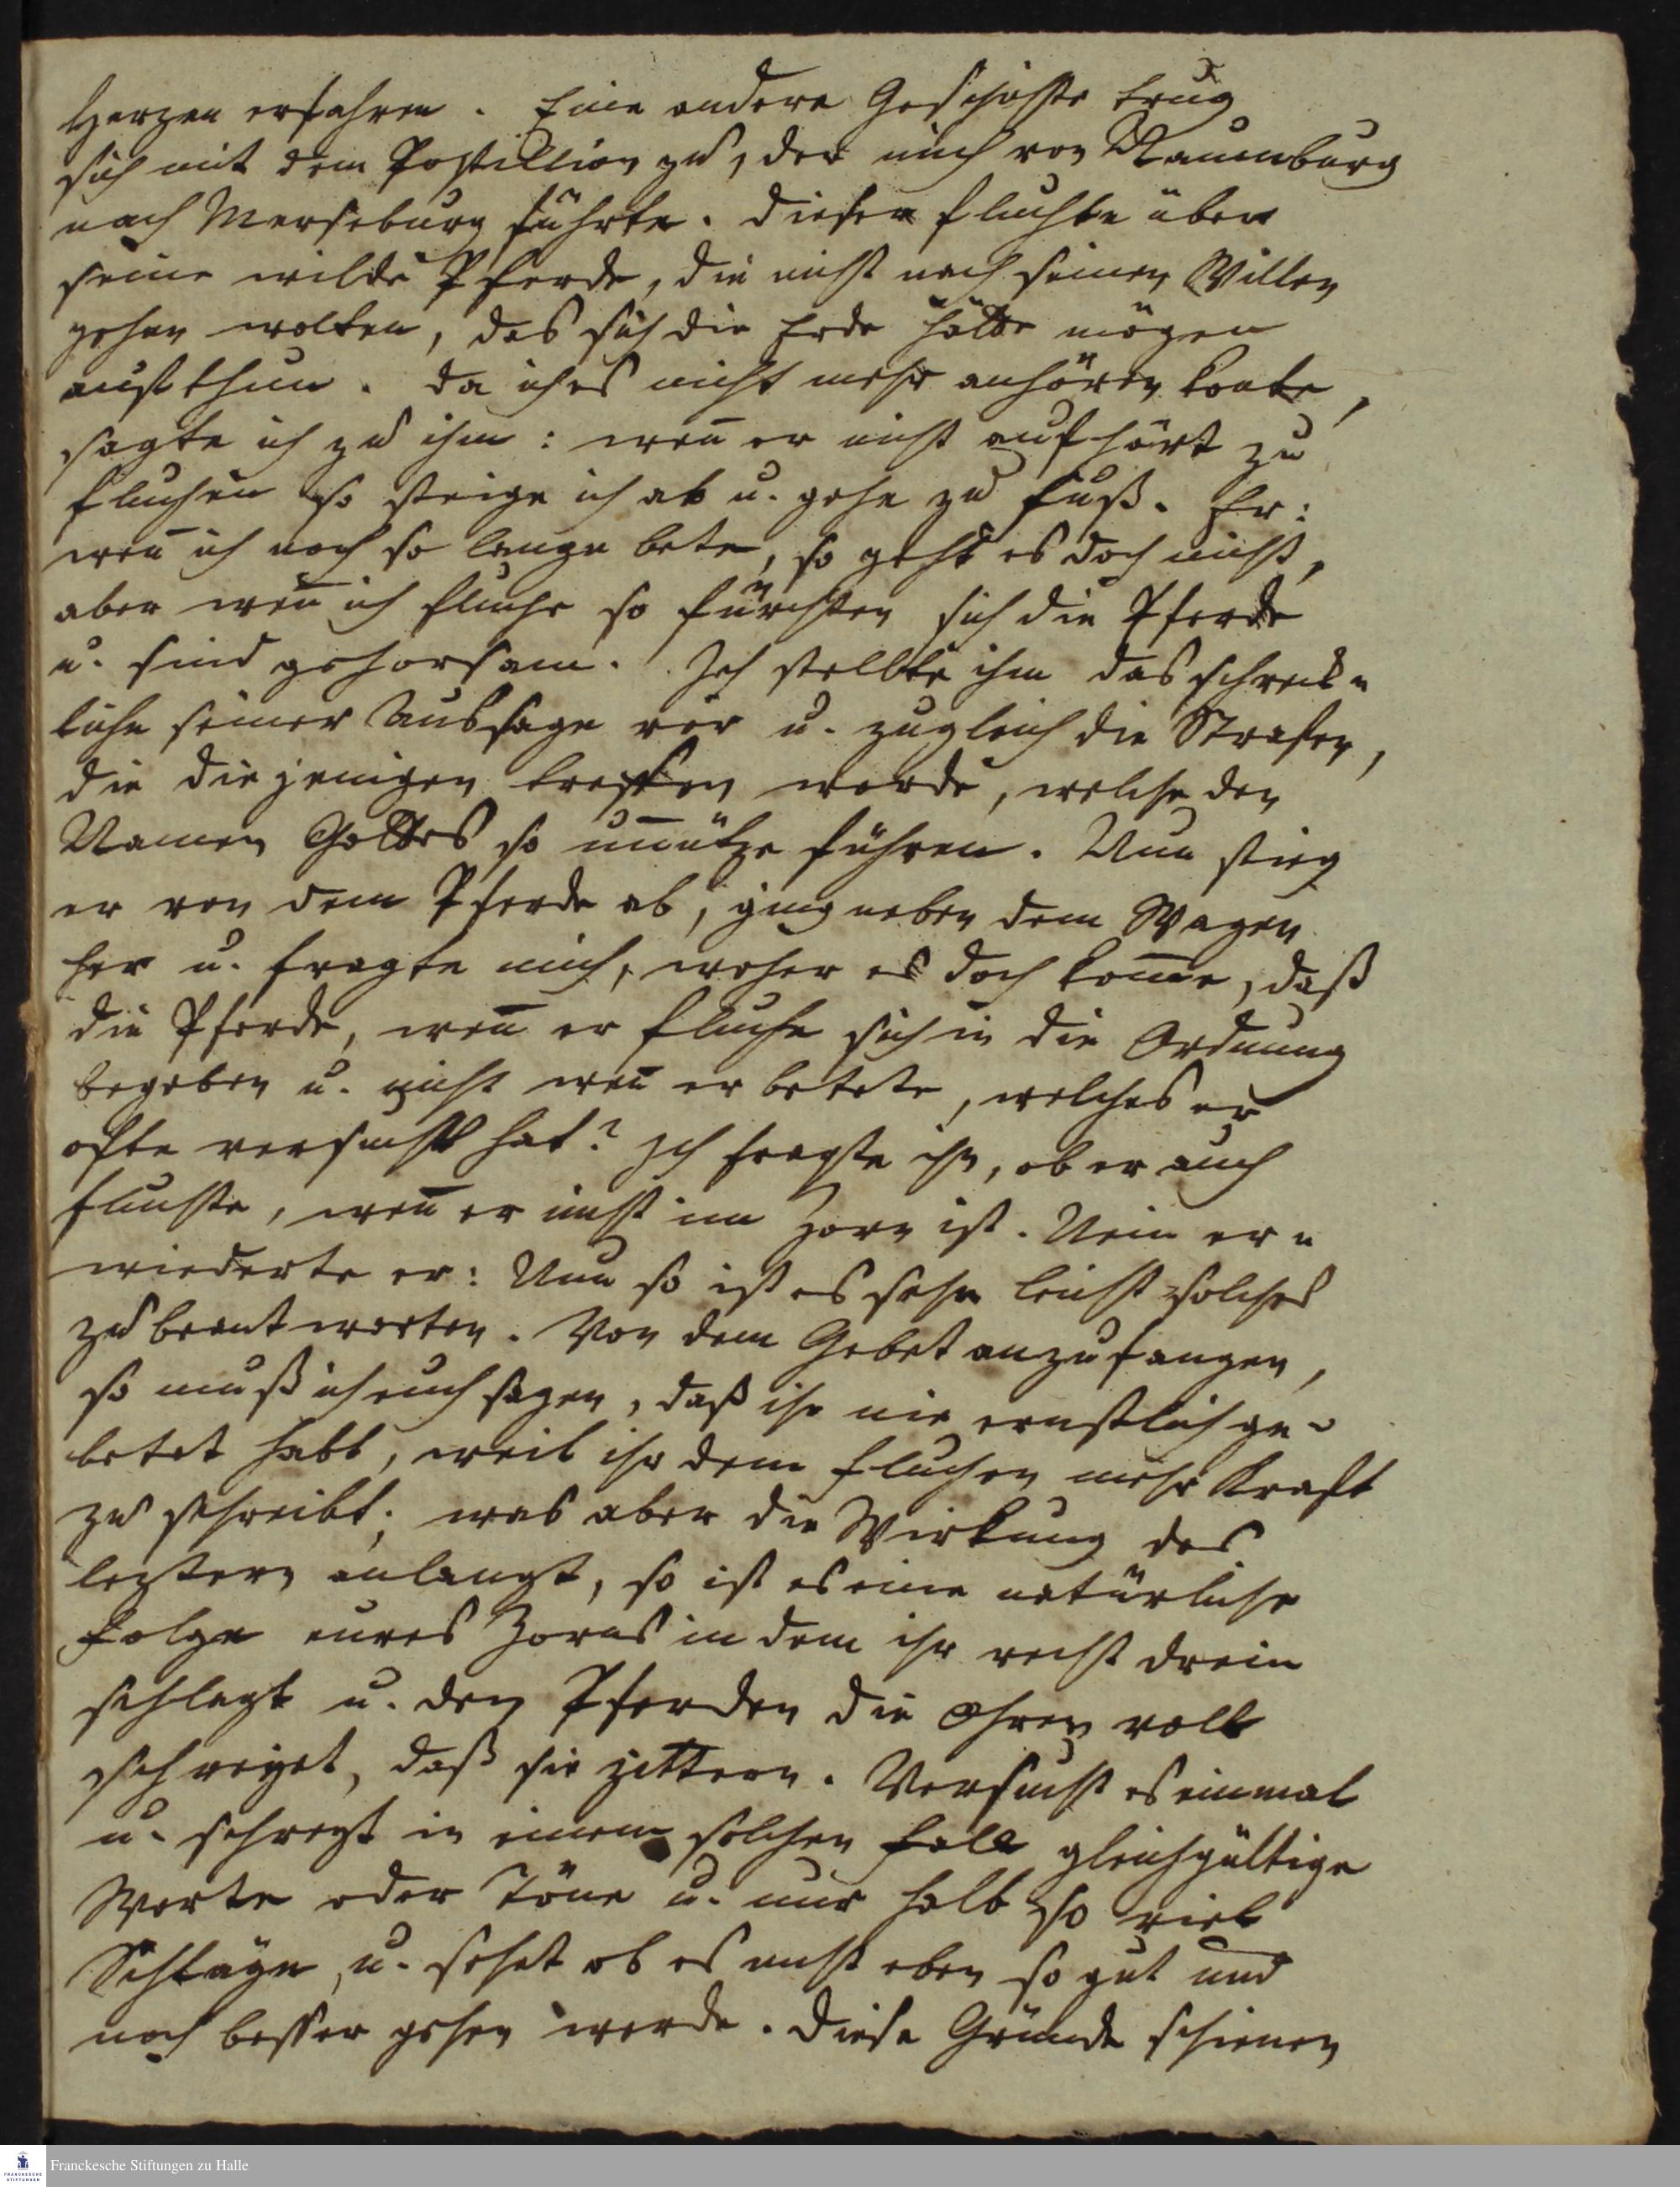 Herzen erfahren. Eine andere Geschichte trug
sich mit dem Postillion zu, der mich von Naumburg
nach Merseburg führte. Dieser fluchte über
seine wilde Pferde, die nicht nach seinen Willen
gehen wolten, das sich die Erde hätte mögen
aufthun. Da ich es nicht mehr anhören konte,
sagte ich zu ihm: weñ er nicht aufhört zu
fluchen so steige ich ab u. gehe zu fuß. Er:
weñ ich noch so lange bete, so geht es doch nicht,
aber weñ ich fluche so fürchten sich die Pferde
u. sind gehorsam. Ich stellte ihm das schreck-
liche seiner Aussage vor u. zugleich die Strafen,
die diejenigen treffen werde, welche den
Namen Gottes so uñütze führen. Nun stieg
er von dem Pferde ab, ging neben dem Wagen
her u. fragte mich, woher es doch kom̄e, daß
die Pferde, weñ er fluche sich in die Ordnung
begeben u. nicht weñ er betete, welches er
ofte versucht hat? Ich fragte ihn, ob er auch
fluchte, weñ er nicht im Zorn ist. Nein er-
wiederte er: Nun so ist es sehr leicht solches
zu beantworten. Von dem Gebet anzufangen,
so muß ich euch sagen, daß ihr nie ernstlich ge-
betet habt, weil ihr dem fluchen mehr Kraft
zu schreibt; was aber die Wirkung des
leztern anlangt, so ist es eine natürliche
Folge eures Zorns in dem ihr recht drein
schlagt u. den Pferden die Ohren voll
schreyet, daß sie zittern. Versucht es einmal
u. schreyt in einem solchen fall gleichgültige
Worte oder Töne u. nur halb so viel
Schläge, u. sehet ob es nicht eben so gut und
noch besser gehen werde. Diese Gründe schienen
Franckesche Stiftungen zu Halle